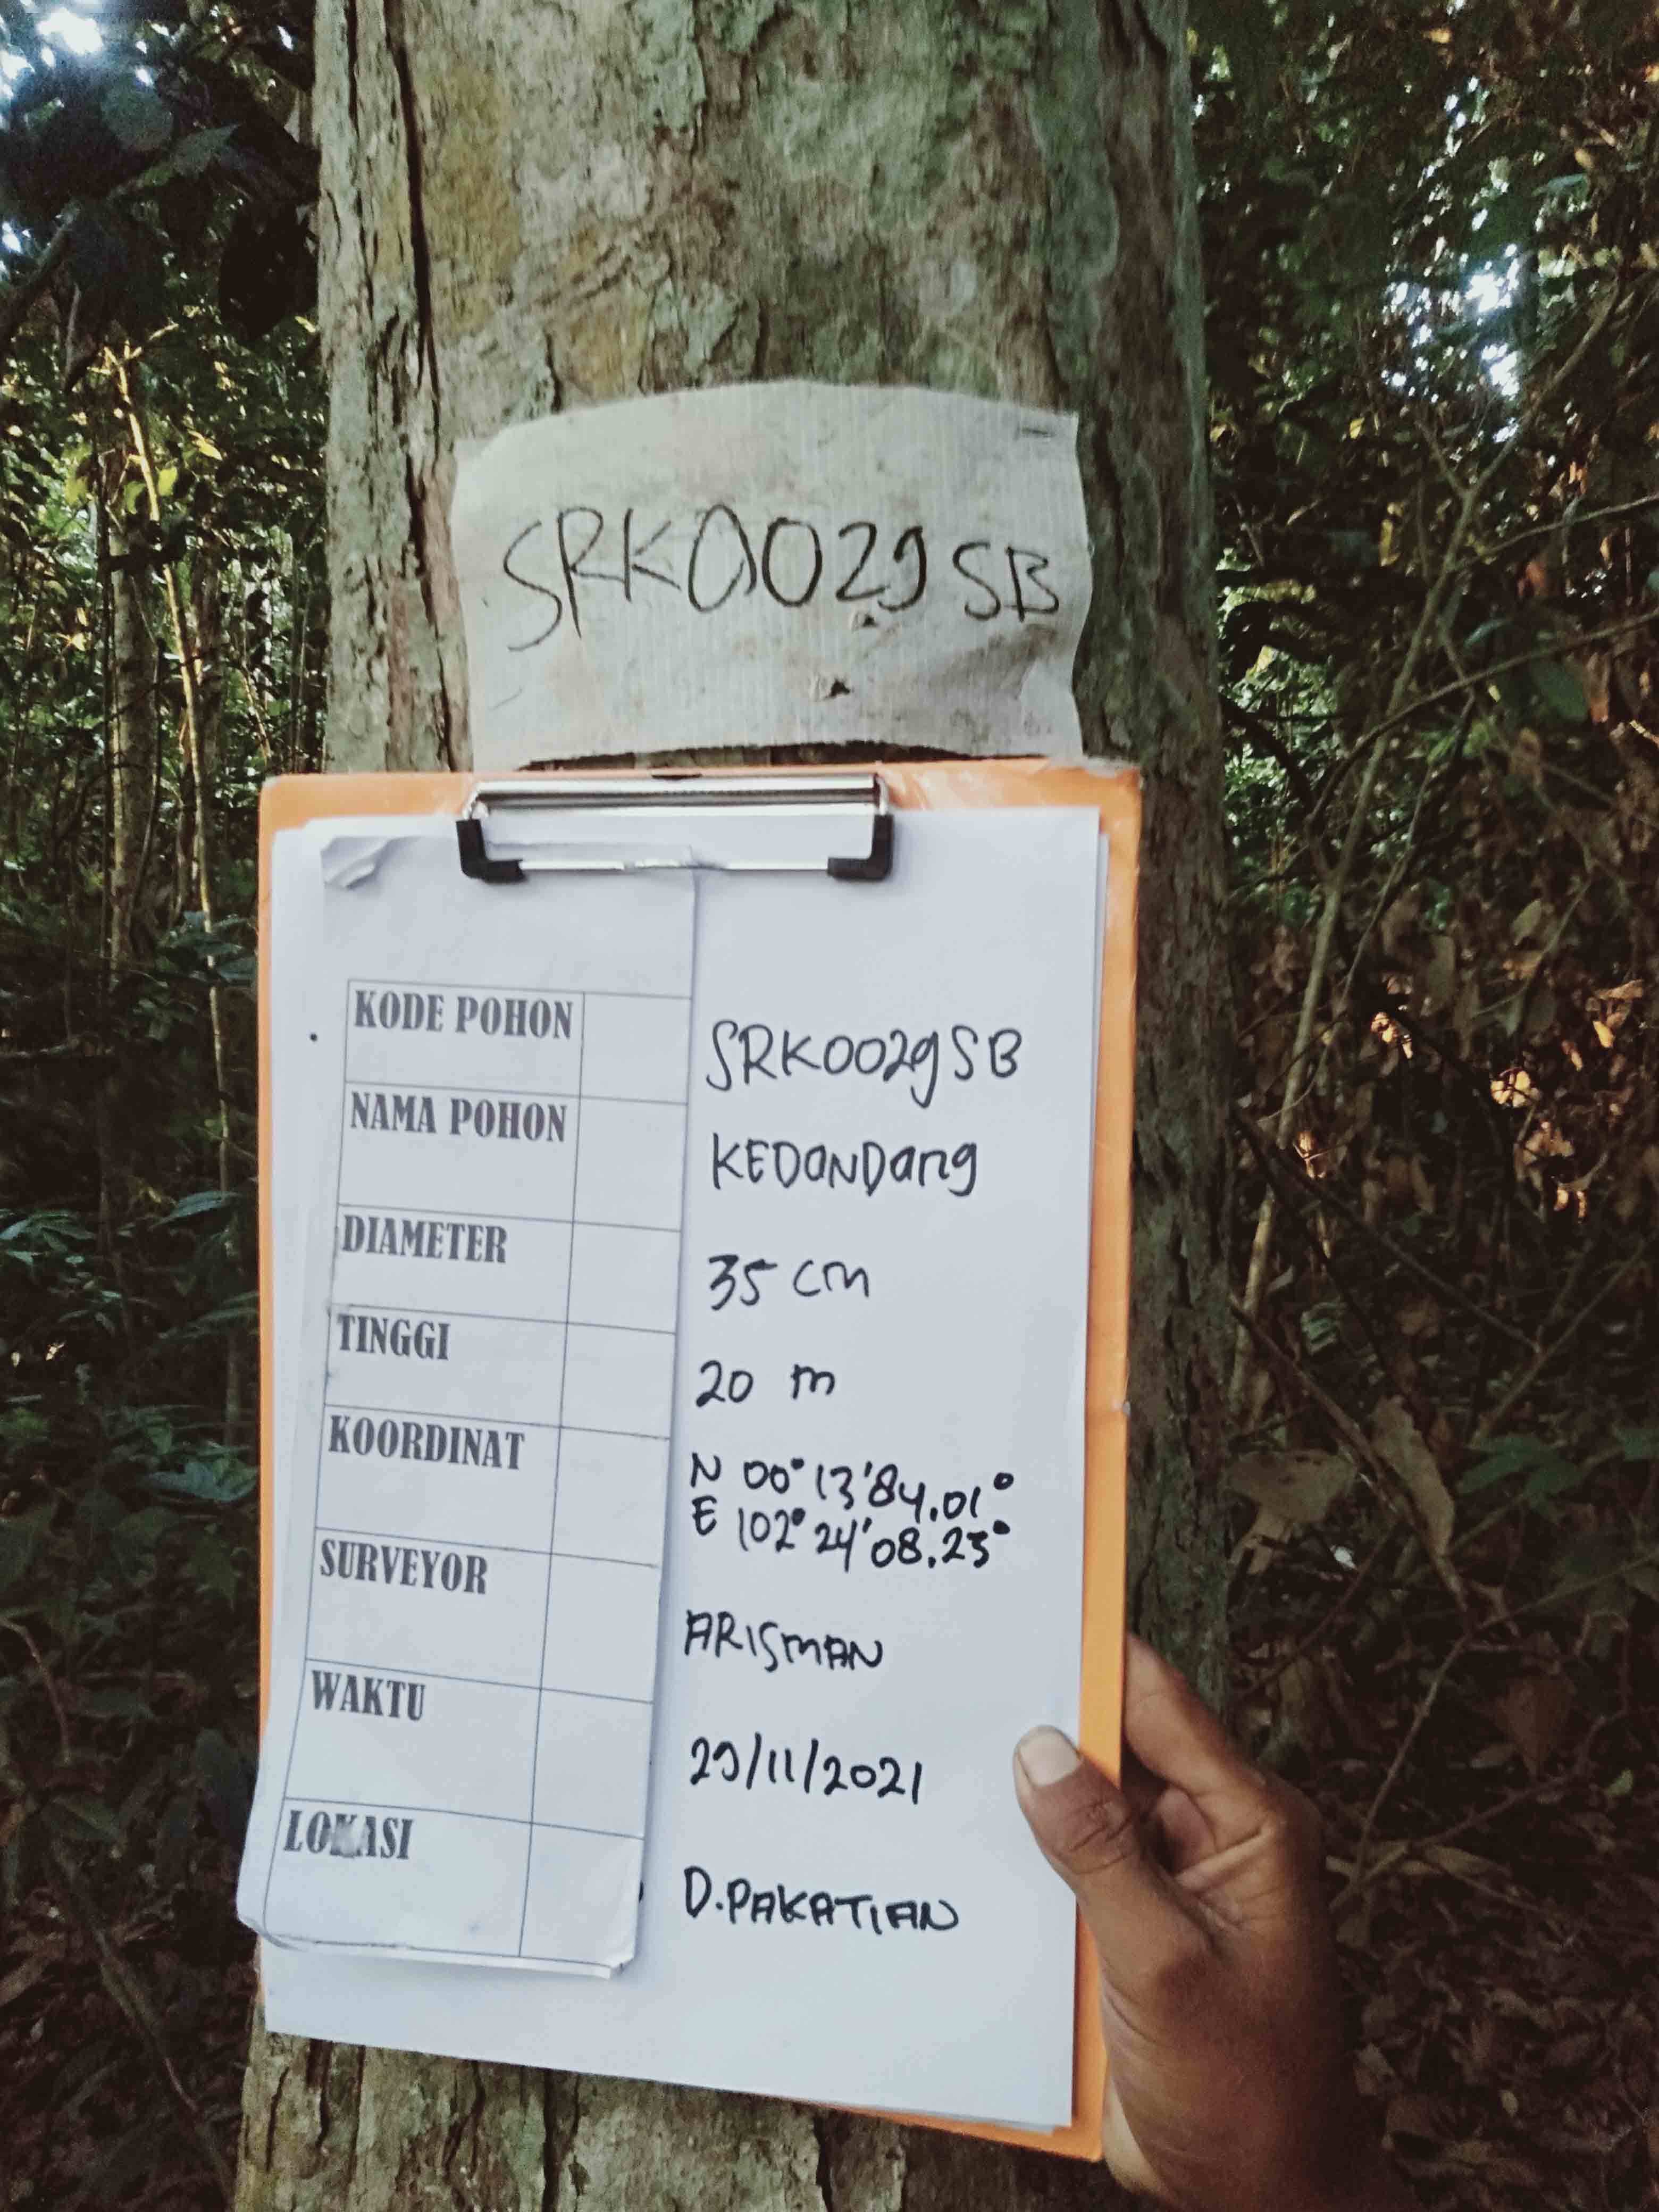 SRK0029SB
KODE POHON SRK0029SB
NAMA POHON KEDONDang
DIAMETER 35 cm
TINGGI 20 m
KOORDINAT N 00° 13'84.01°
E 102° 24'08.23°
SURVEYOR ARISMAN
WAKTU 29/11/2021
LOKASI D.PAKATIAN